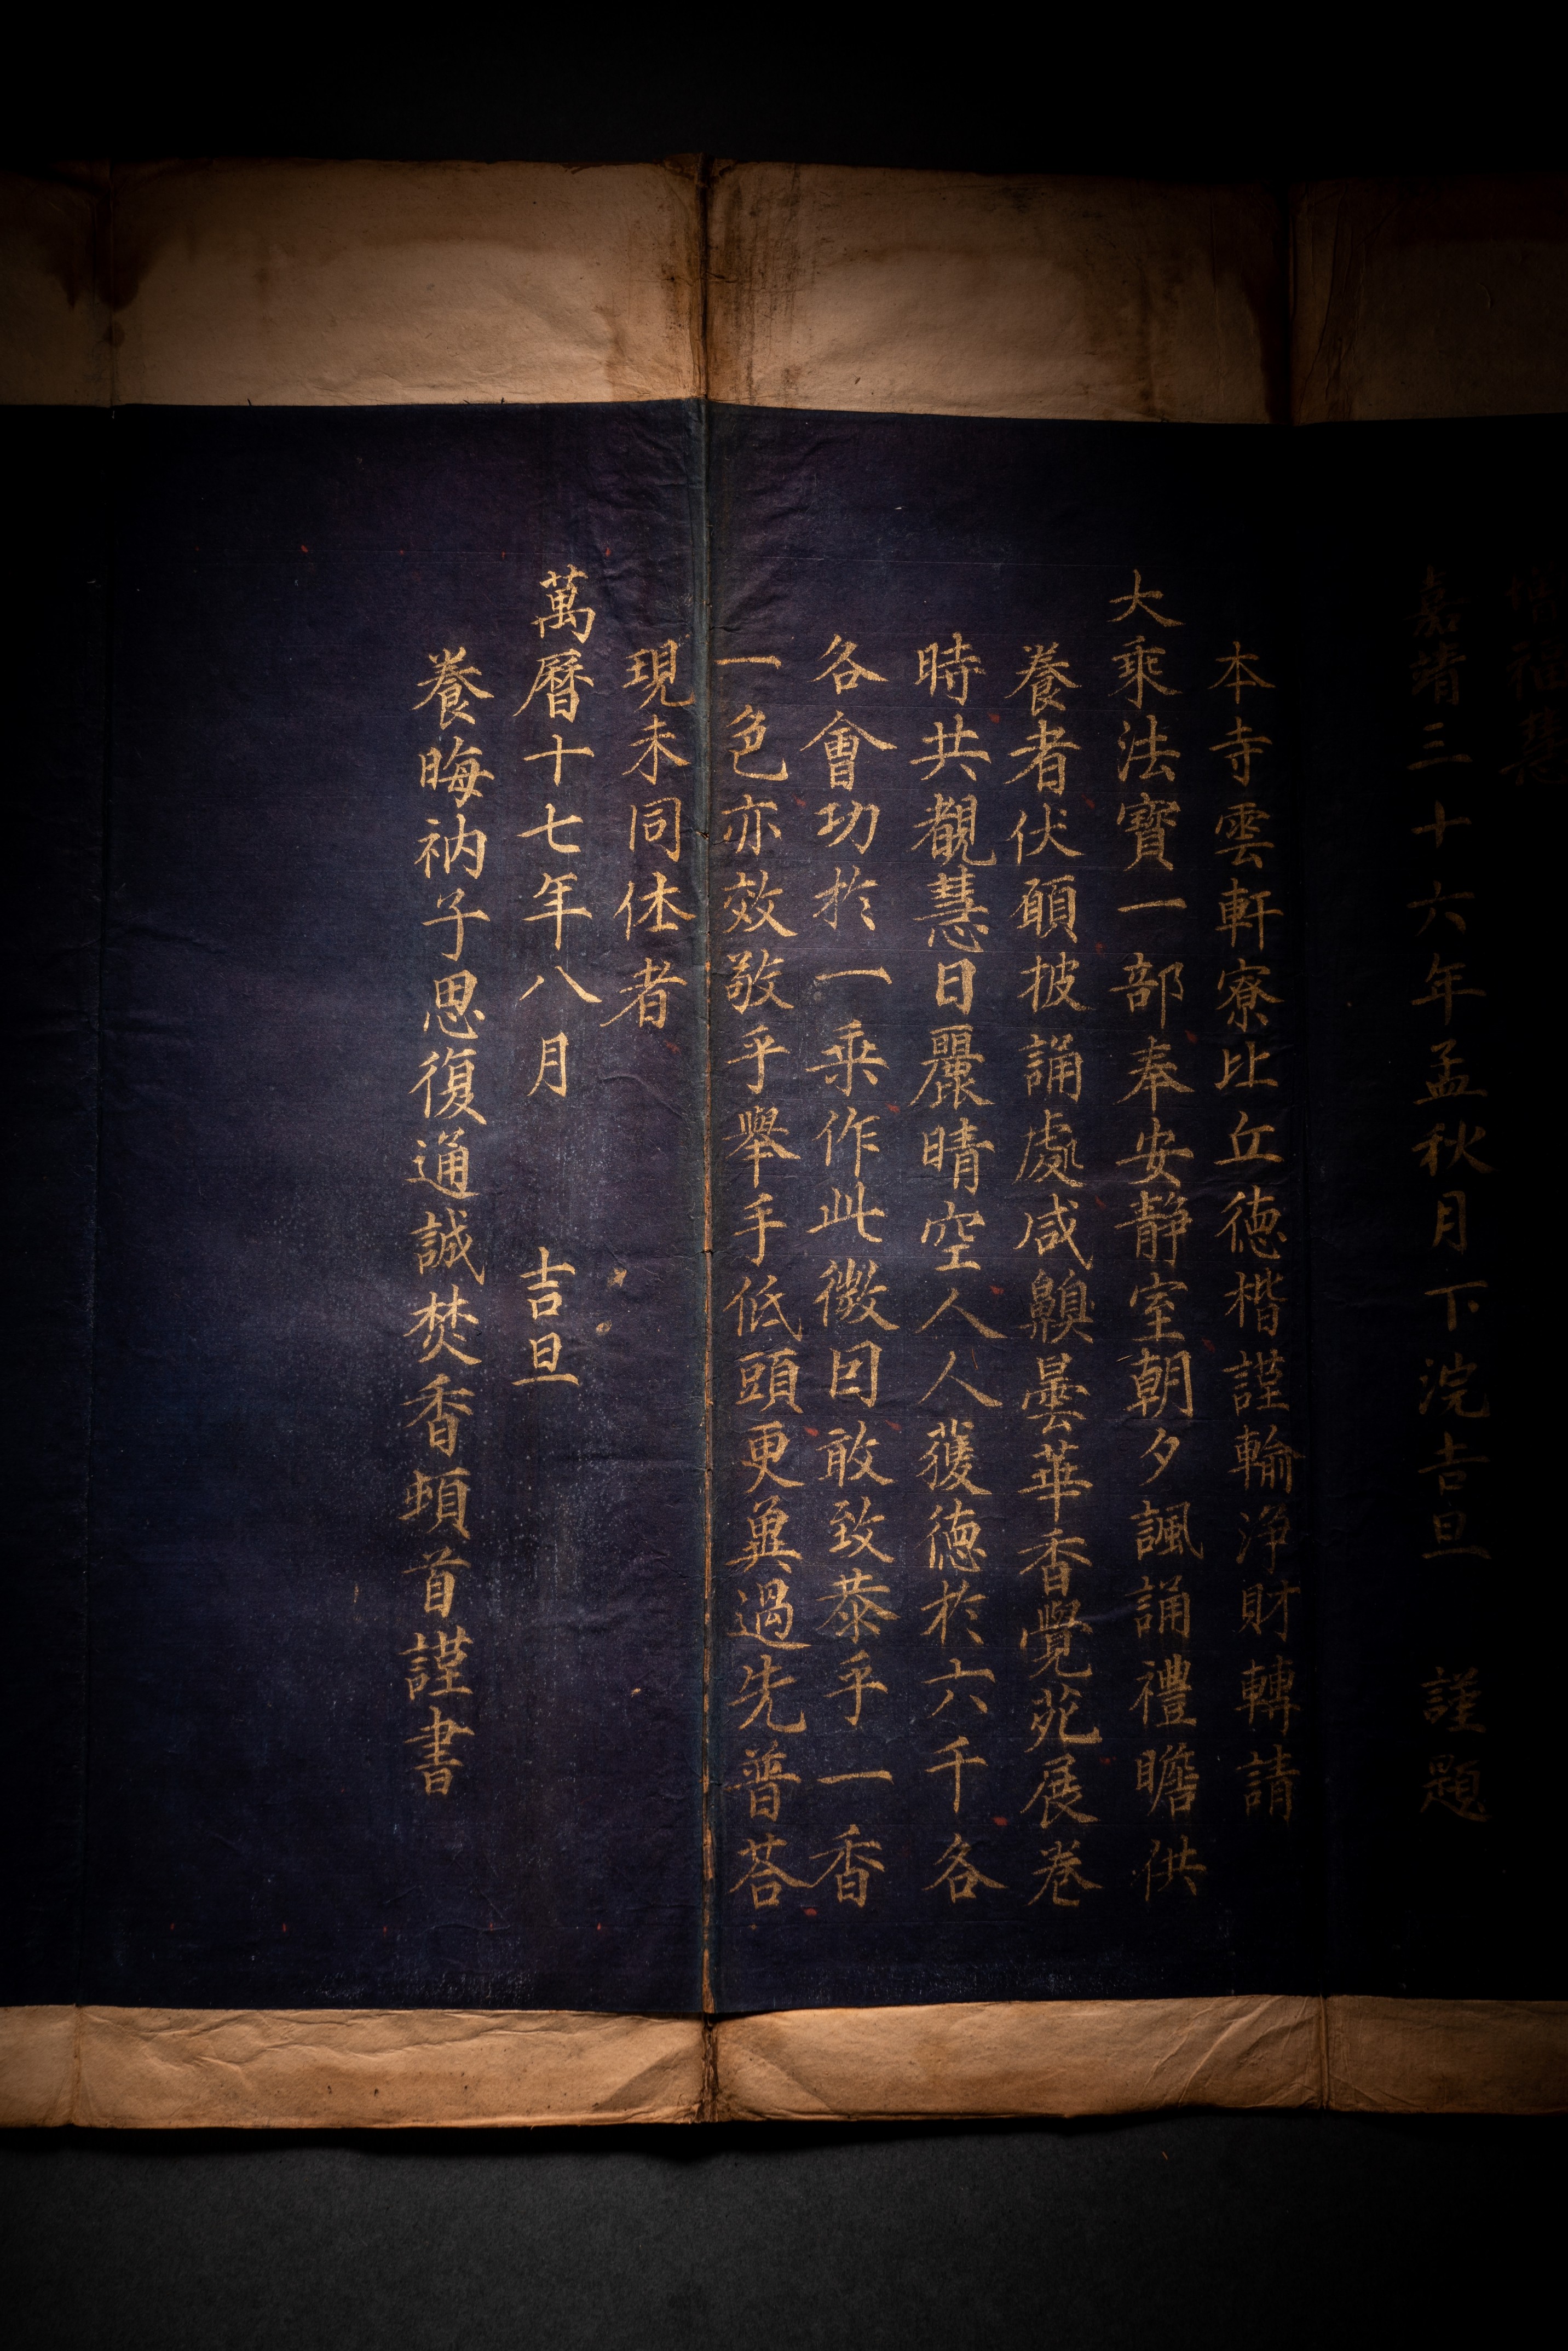 增福慧
嘉靖三十六年孟秋月下浣吉旦　謹題
本寺雲軒寮比丘德楷謹輸淨財轉請
大乘法寶一部奉安靜室朝夕諷誦禮瞻供
養者伏願披誦處咸齅曇華香覺苑展卷
時共觀慧日麗晴空人人獲德於六千各
各會功於一乘作此微因敢致恭乎一香
一色亦效敬乎舉手低頭更兾過先普荅
現未同体者
萬曆十七年八月　吉旦
養晦衲子思復通誠焚香頓首謹書